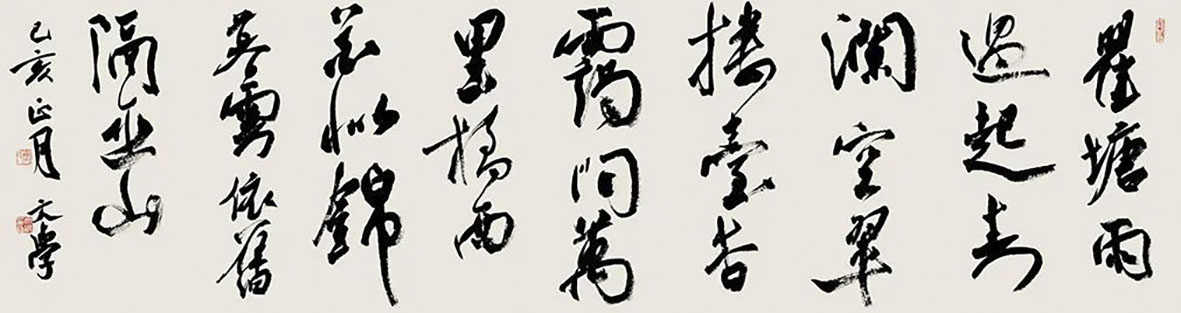 瞿塘雨
過起春
瀾空翠
樓臺杳
靄間萬
里橋西
花似錦
雲依舊
隔巫山
己亥正月 學